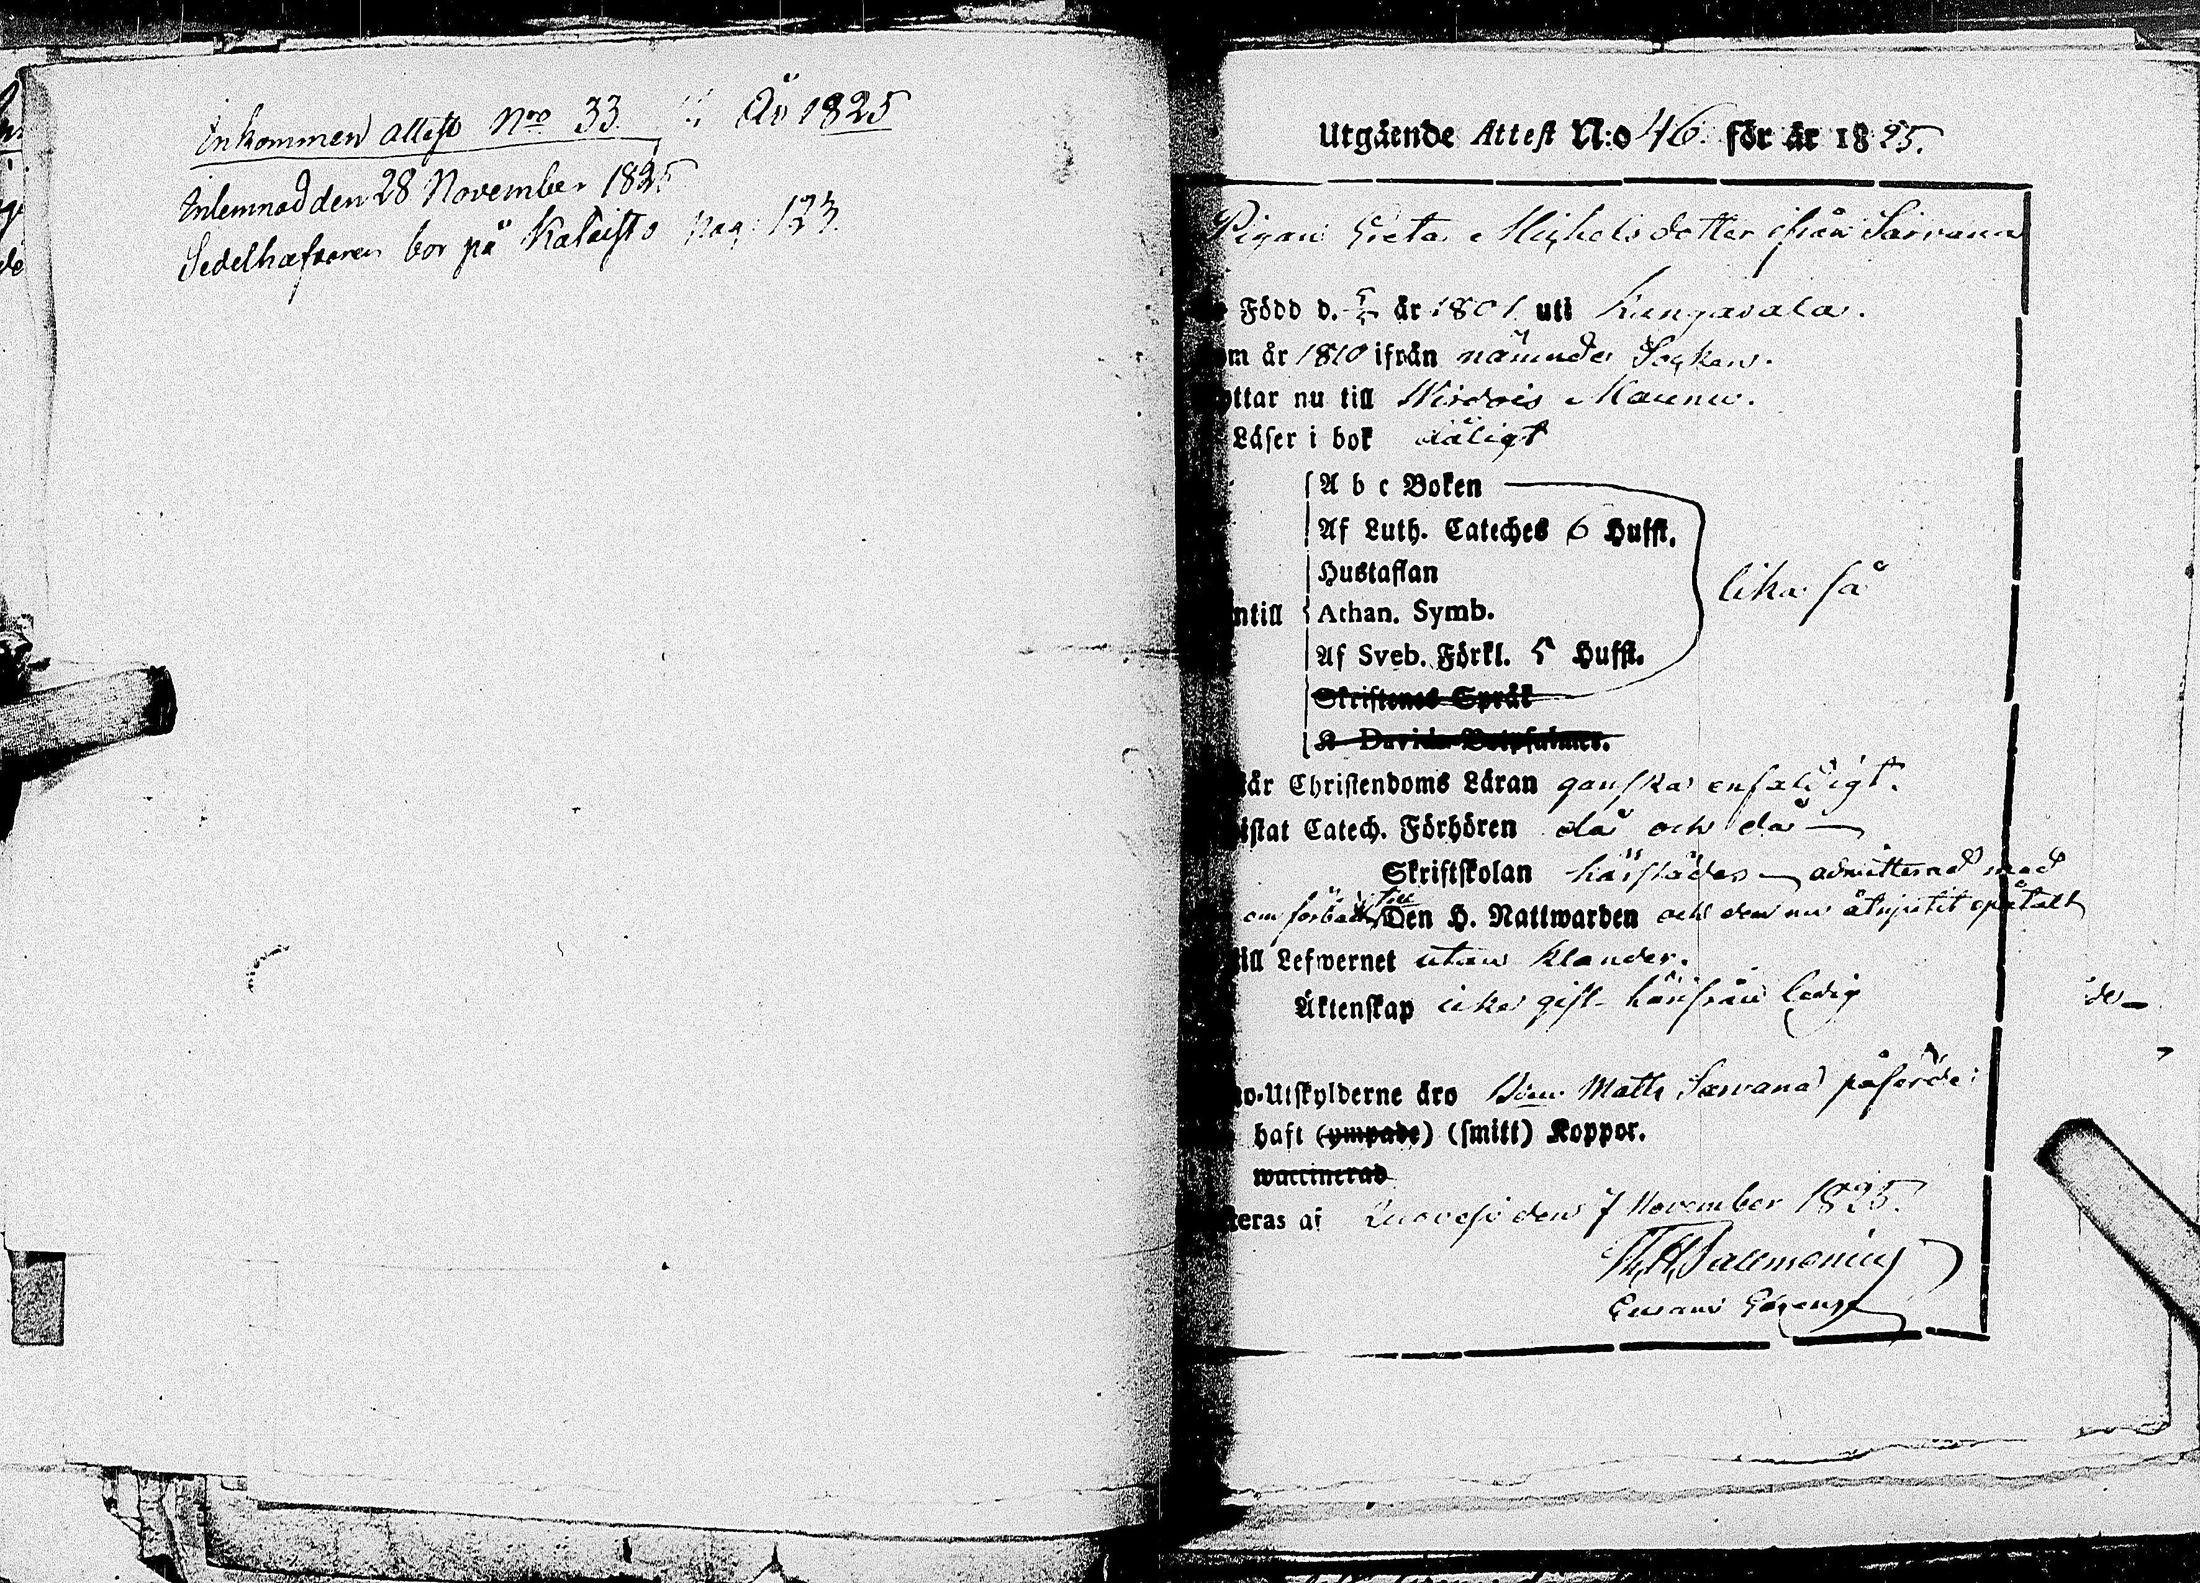 Inkommen attest Nro 33 År 1825
Inlemnad den 28 November 1825
Sedelhafvaren bor på Kalaisto pag: 123.
Utgående Attest N:o 46. för år 1825.
Pigan Greta Michelsdotter ifrån Sarvana
Född d. 5/5 år 1801 uti Kangasala.
om år 1810 ifrån nämnde Socken.
ottar nu till Wirdois Maunu.
Läser i bok dåligt
A b c Boken
Af Luth. Cateches 6 Hufst.
Hustaflan
lika så
ntill Athan. Symb.
Af Sveb. Förkl. 5 Hufst.
Skriftenes Språk
K Davids Botpsalmer.
år Christendoms Läran ganska enfaldigt.
istat Catech. Förhören då och då
Skriftskolan härstädes admitterad med
om förbättr till Den H. Nattwarden och den nu åtnjutit opåtalt
till Lefwernet utan klander.
Äktenskap icke gift härifrån ledig
de
o-Utskylderne äro Matts Sarvana påförde:
haft (ympade) (smitt) Koppor.
waccinerad
teras af Ruovesi den 7 November 1825.